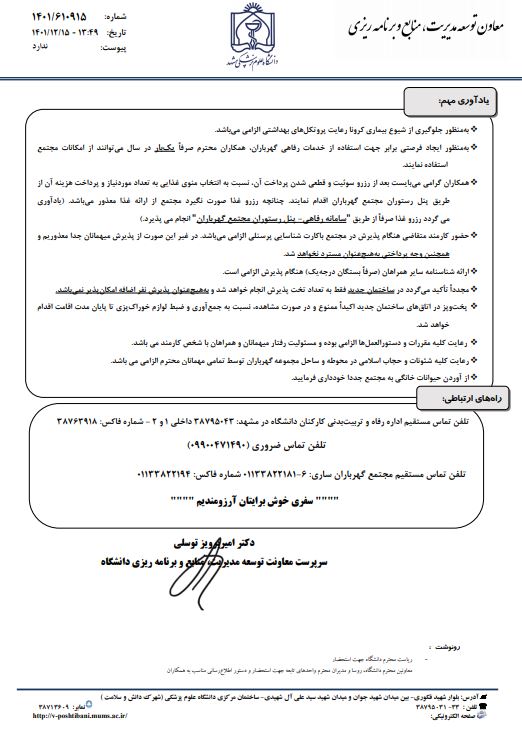 معاون توسعه مدیریت، منابع و برنامه ریزی
دانشگاه علوم پزشکی مشهد
شماره: ۱۴۰۱/۶۱۰۹۱۵
تاریخ: ۱۳:۴۹ - ۱۴۰۱/۱۲/۱۵
پیوست: ندارد
یادآوری مهم:
❖ به‌منظور جلوگیری از شیوع بیماری کرونا رعایت پروتکل‌های بهداشتی الزامی می‌باشد.
❖ به‌منظور ایجاد فرصتی برابر جهت استفاده از خدمات رفاهی گهرباران، همکاران محترم صرفاً یک‌بار در سال می‌توانند از امکانات مجتمع
استفاده نمایند.
❖ همکاران گرامی می‌بایست بعد از رزرو سوئیت و قطعی شدن پرداخت آن، نسبت به انتخاب منوی غذایی به تعداد موردنیاز و پرداخت هزینه آن از
طریق پنل رستوران مجتمع گهرباران اقدام نمایند. چنانچه رزرو غذا صورت نگیرد مجتمع از ارائه غذا معذور می‌باشد. (یادآوری
می گردد رزرو غذا صرفاً از طریق "سامانه رفاهی- پنل رستوران مجتمع گهرباران" انجام می پذیرد.)
❖ حضور کارمند متقاضی هنگام پذیرش در مجتمع باکارت شناسایی پرسنلی الزامی می‌باشد. در غیر این صورت از پذیرش میهمانان جدا معذوریم و
همچنین وجه پرداختی به‌هیچ‌عنوان مسترد نخواهد شد.
❖ ارائه شناسنامه سایر همراهان (صرفاً بستگان درجه‌یک) هنگام پذیرش الزامی است.
❖ مجدداً تأکید می‌گردد در ساختمان جدید فقط به تعداد تخت پذیرش انجام خواهد شد و به‌هیچ‌عنوان پذیرش نفر اضافه امکان‌پذیر نمی‌باشد.
❖ پخت‌وپز در اتاق‌های ساختمان جدید اکیداً ممنوع و در صورت مشاهده، نسبت به جمع‌آوری و ضبط لوازم خوراک‌پزی تا پایان مدت اقامت اقدام
خواهد شد.
❖ رعایت کلیه مقررات و دستورالعمل‌ها الزامی بوده و مسئولیت رفتار میهمانان و همراهان با شخص کارمند می باشد.
❖ رعایت کلیه شئونات و حجاب اسلامی در محوطه و ساحل مجموعه گهرباران توسط تمامی مهمانان محترم الزامی می باشد.
❖ از آوردن حیوانات خانگی به مجتمع جددا خودداری فرمایید.
راه‌های ارتباطی:
تلفن تماس مستقیم اداره رفاه و تربیت‌بدنی کارکنان دانشگاه در مشهد: ۳۸۷۹۵۰۴۳ داخلی ۱ و ۲ - شماره فاکس: ۳۸۷۶۳۹۱۸
تلفن تماس ضروری (۰۹۹۰۰۴۷۱۴۹۰)
تلفن تماس مستقیم مجتمع گهرباران ساری: ۶-۰۱۱۳۳۸۲۲۱۸۱ شماره فاکس: ۰۱۱۳۳۸۲۲۱۹۴
"""" سفری خوش برایتان آرزومندیم """"
دکتر امیرپرویز توسلی
سرپرست معاونت توسعه مدیریت، منابع و برنامه ریزی دانشگاه
رونوشت :
- ریاست محترم دانشگاه جهت استحضار
معاونین محترم دانشگاه، روسا و مدیران محترم واحدهای تابعه جهت استحضار و دستور اطلاع‌رسانی مناسب به همکاران
آدرس: بلوار شهید فکوری- بین میدان شهید جوان و میدان شهید سید علی آل شهیدی- ساختمان مرکزی دانشگاه علوم پزشکی (شهرک دانش و سلامت )
تلفن: ۳۳- ۳۸۷۹۵۰۳۱
نمابر: ۳۸۷۱۳۶۰۹
صفحه الکترونیکی:
http://v-poshtibani.mums.ac.ir/